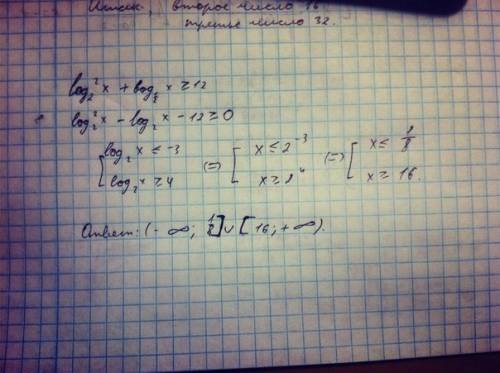 Итак, второе число 16
третье число 32.
log₂²x + log_½ x ≥ 12
log₂²x - log₂ x - 12 ≥ 0
[ log₂ x ≤ -3 (=) [ x ≤ 2⁻³ (=) [ x ≤ 1/8
log₂ x ≥ 4 x ≥ 2⁴ x ≥ 16.
Ответ: (- ∞; 1/8] ∪ [16; + ∞).